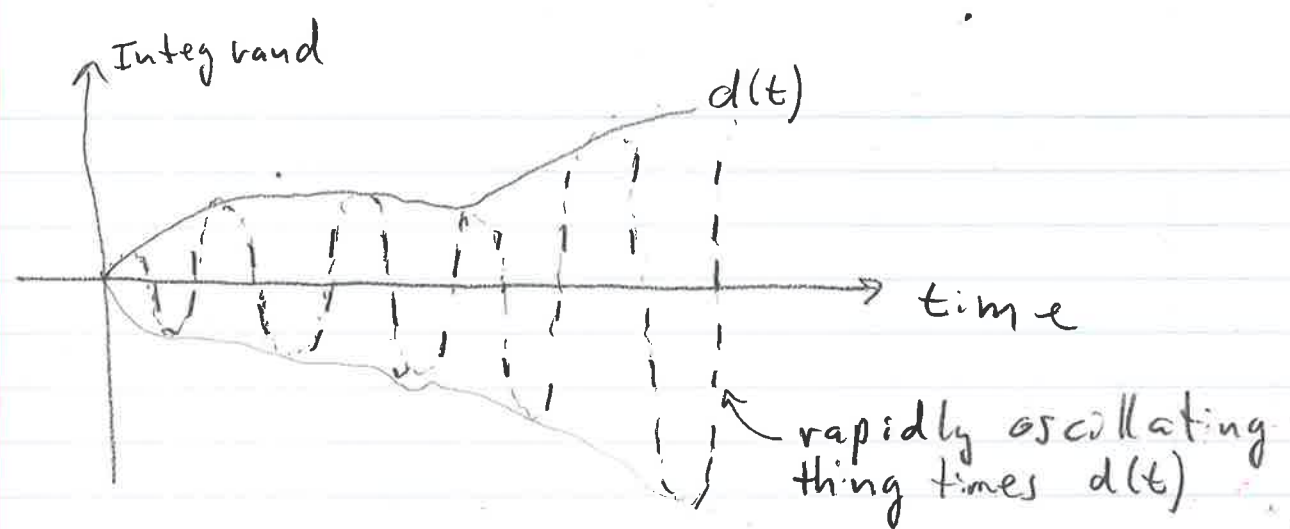 Integrand
d(t)
time
rapidly oscillating
thing times d(t)